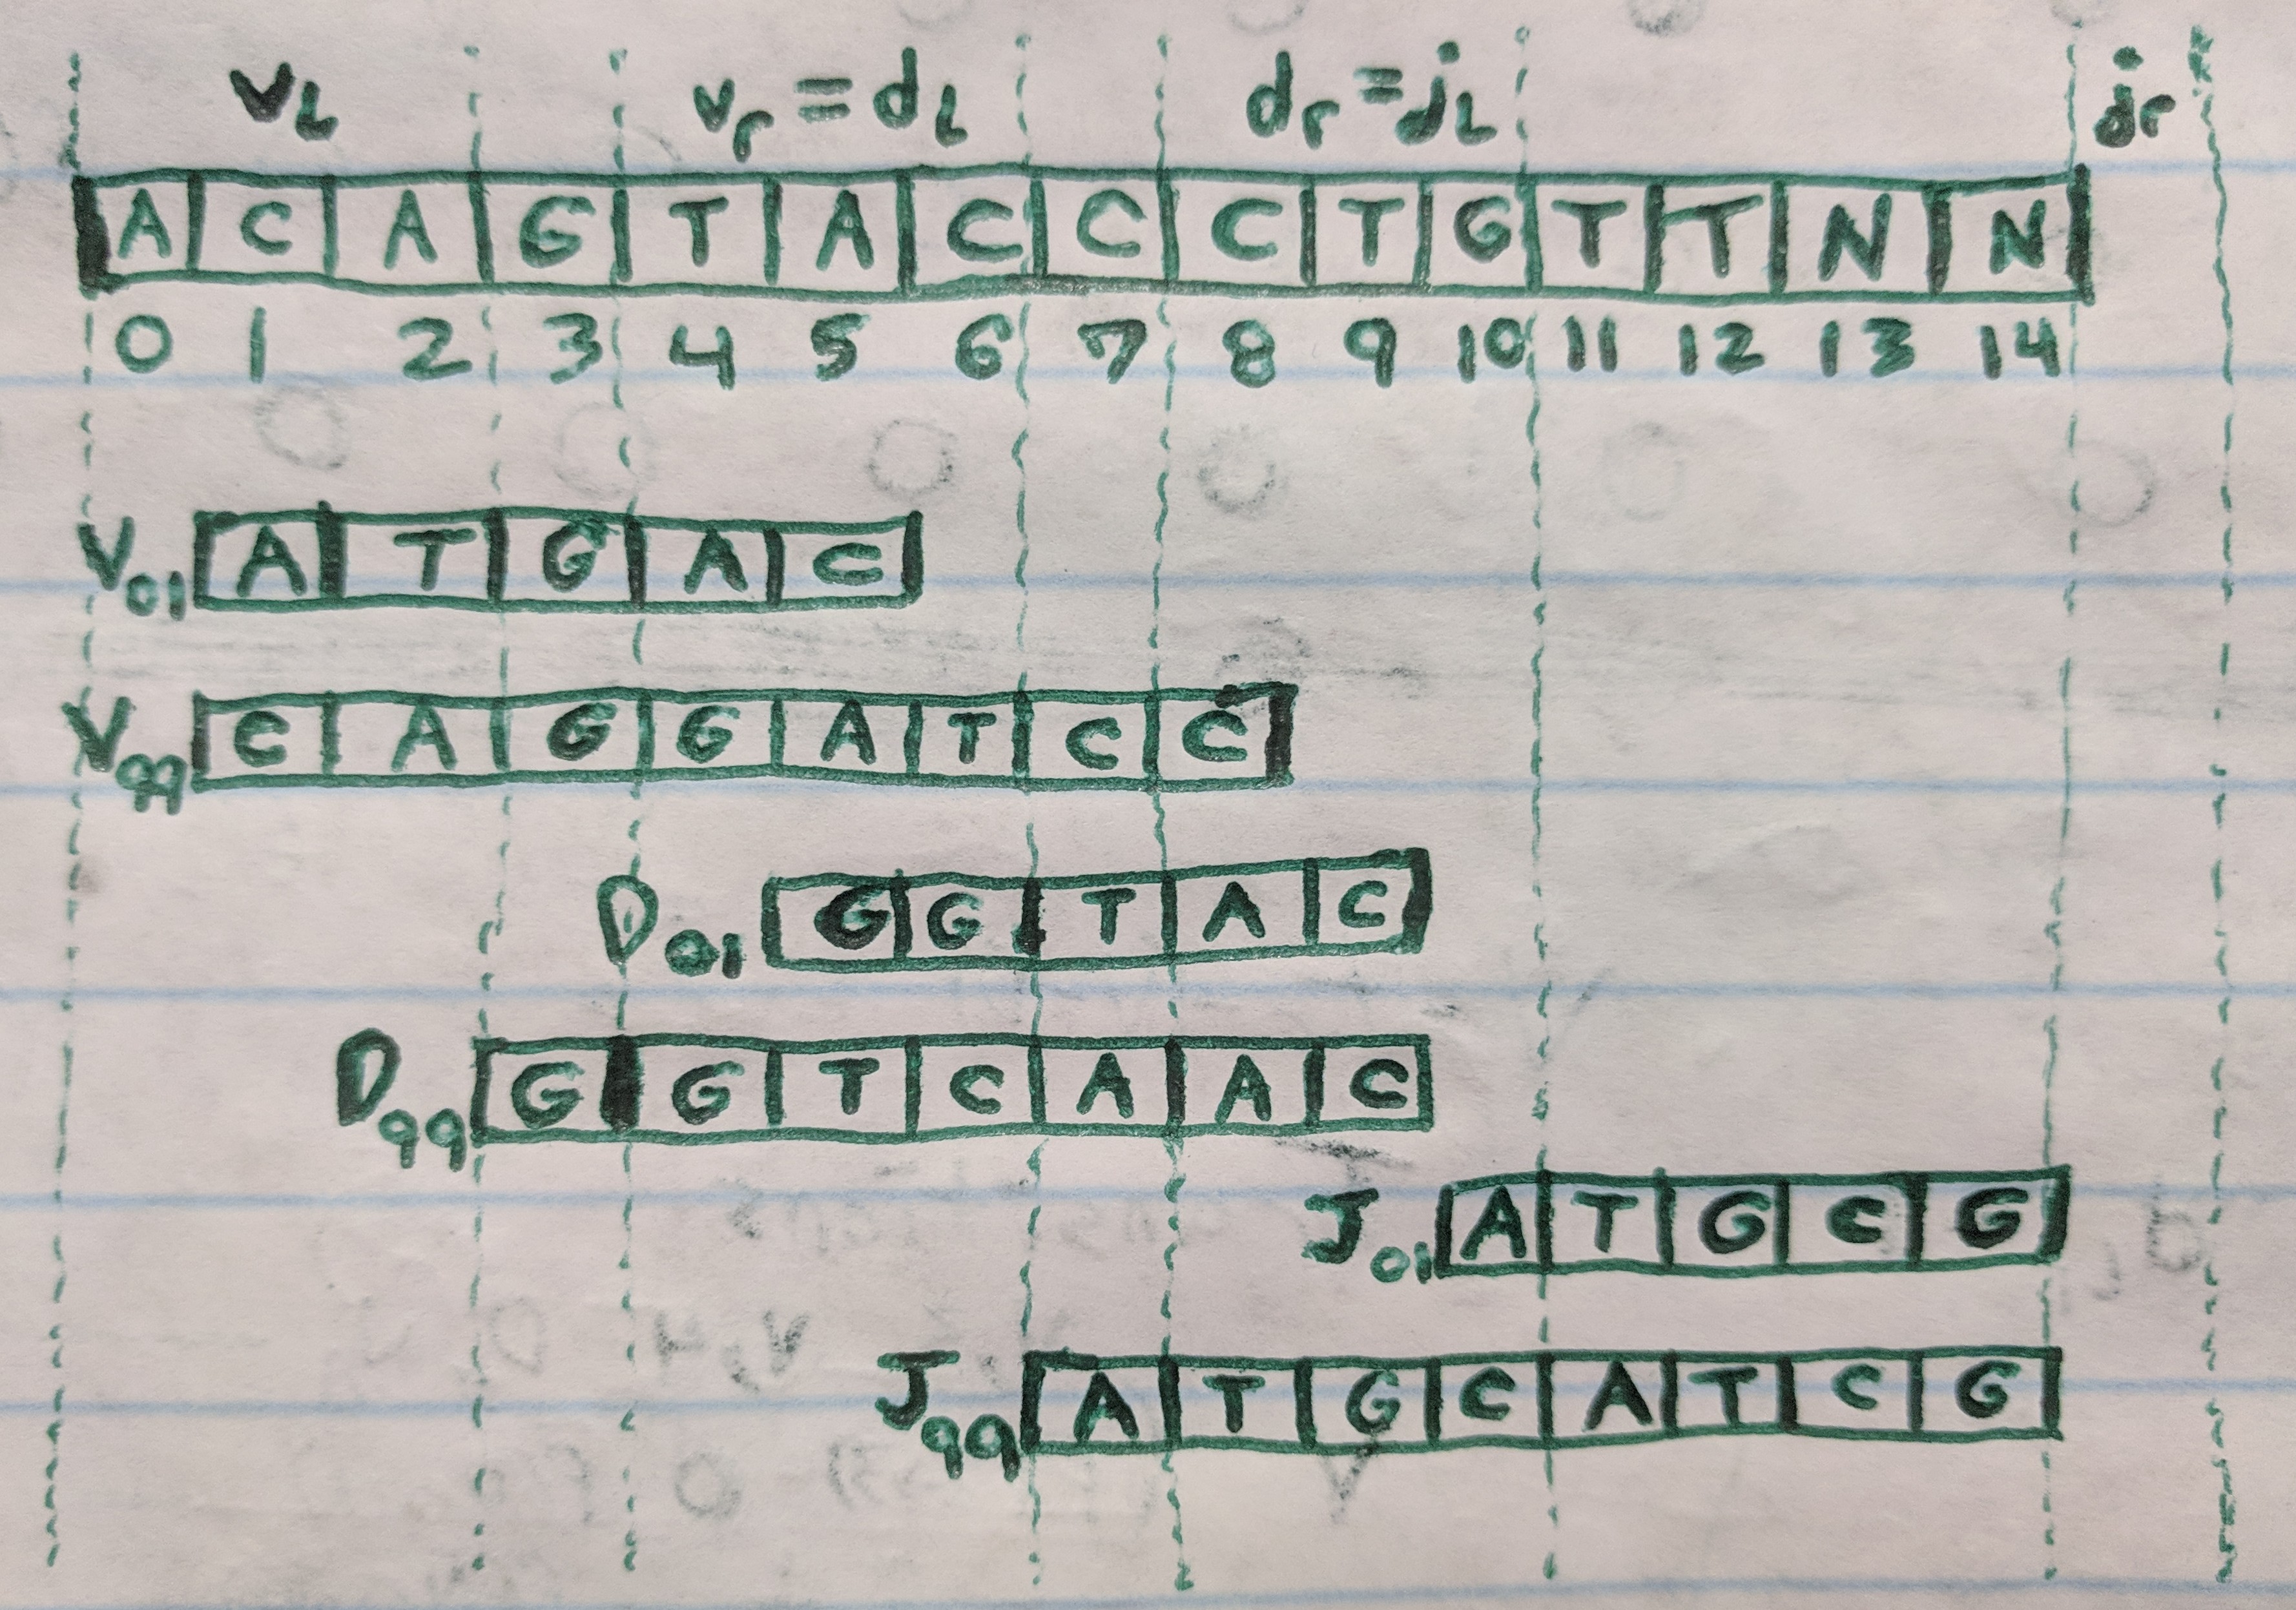 v_l v_r = d_l d_r = j_l j_r
A C A G T A C C C T G T T N N
0 1 2 3 4 5 6 7 8 9 10 11 12 13 14
V_01 A T G A C
V_99 C A G G A T C C
D_01 G G T A C
D_99 G G T C A A C
J_01 A T G C G
J_99 A T G C A T C G